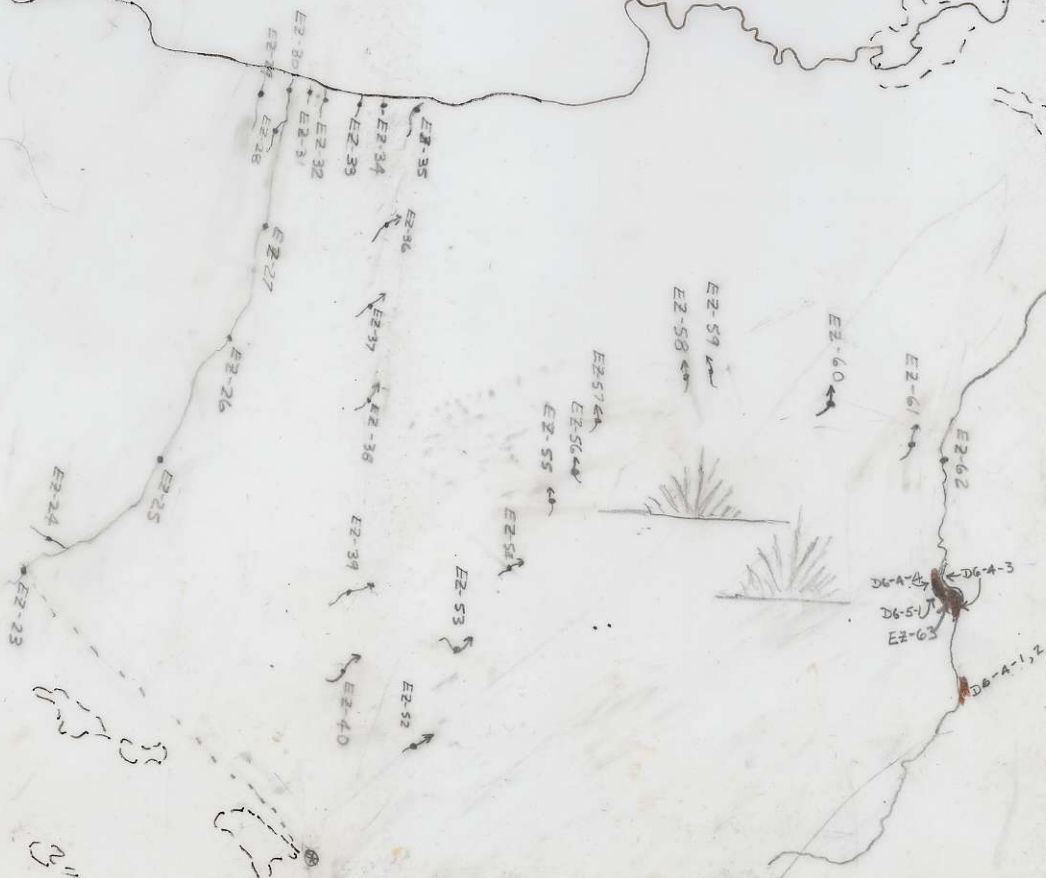 EZ-29
EZ-30
EZ-28
EZ-31
EZ-32
EZ-33
EZ-34
EZ-35
EZ-36
EZ-27
EZ-37
EZ-26
EZ-38
EZ-25
EZ-24
EZ-23
EZ-39
EZ-40
EZ-52
EZ-53
EZ-54
EZ-55
EZ-56
EZ-57
EZ-58
EZ-59
EZ-60
EZ-61
EZ-62
DG-A-4
DG-A-3
DG-5-1
EZ-63
DG-A-1,2